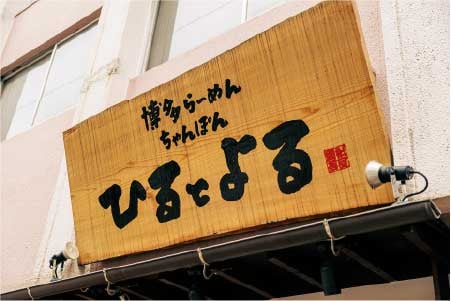 博多らーめん
ちゃんぽん
ひるとよる